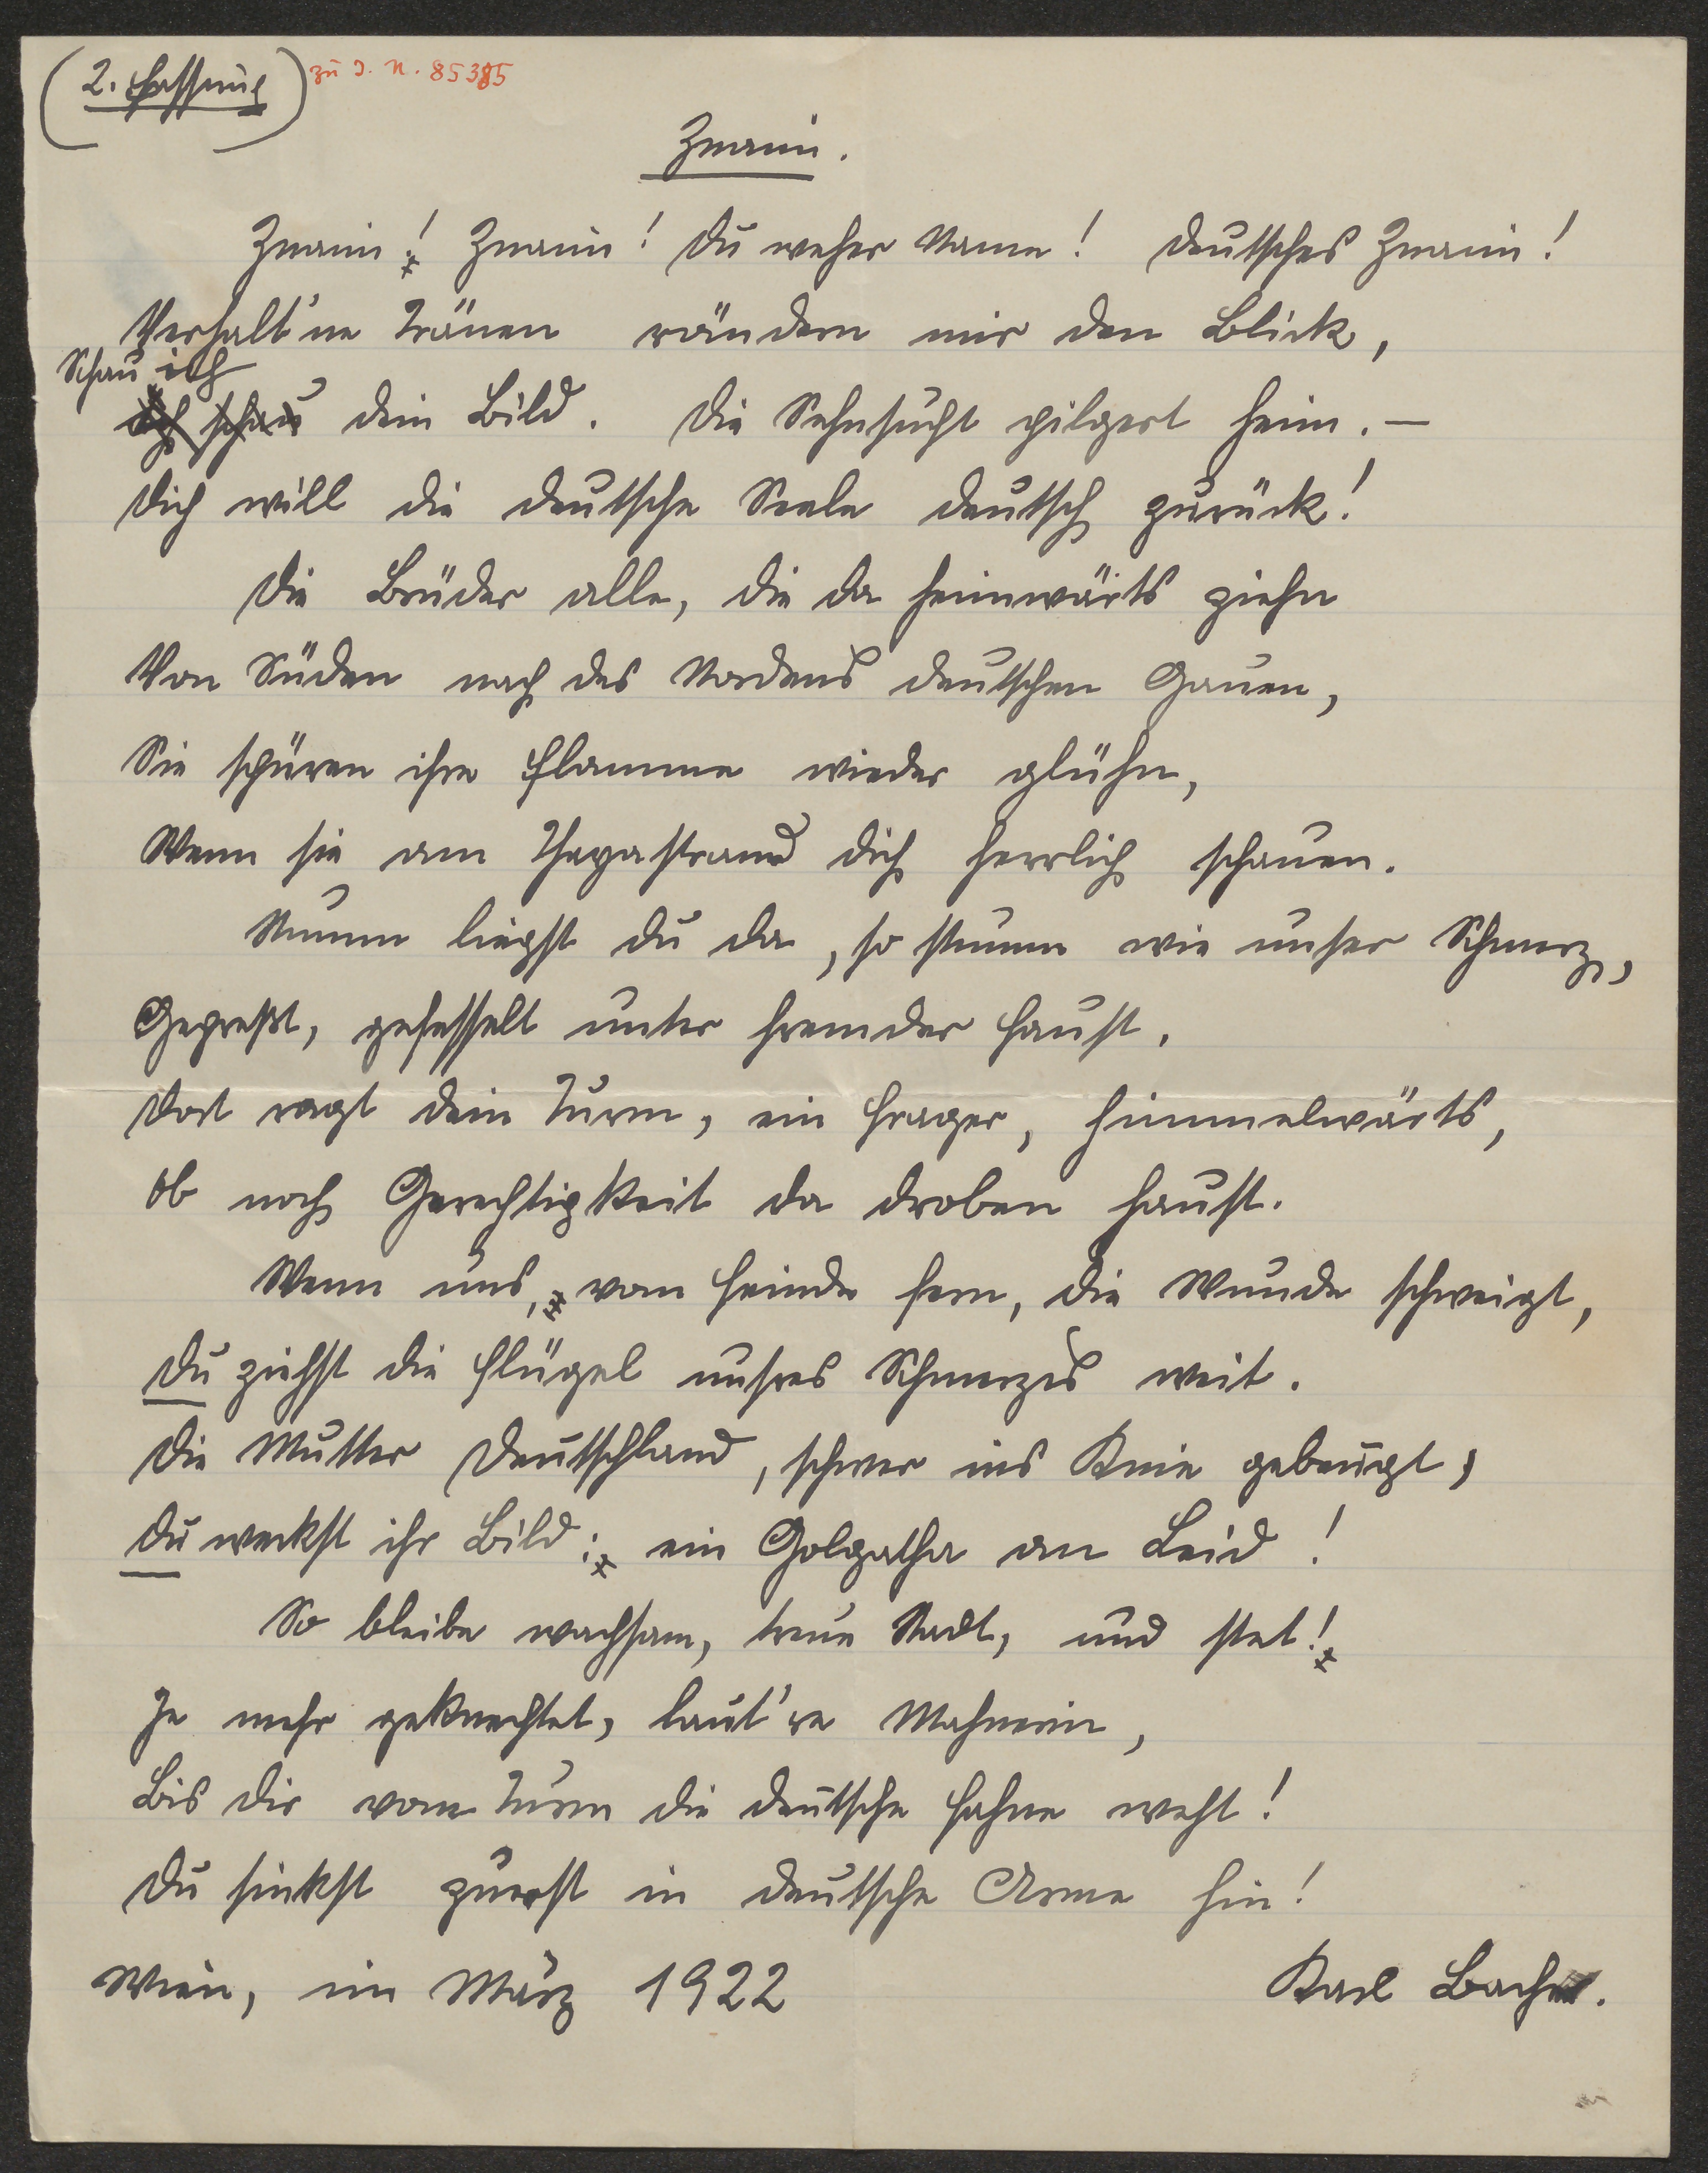 (2. Fassung) zu I. N. 85385
Znaim.
Znaim! Znaim! Du weher Name! Deutsches Znaim!
Verhalt'ne Tränen rändern mir den Blick,
Schau ich
Ich schau dein Bild. Die Sehnsucht pilgert heim. —
Dich will die deutsche Seele deutsch zurück!
Die Brüder alle, die da heimwärts ziehn
Von Süden nach des Nordens deutschen Gauen,
Sie spüren ihre Flamme wieder glühn,
Wenn sie am Thayastrand dich herrlich schauen.
Stumm liegst du da, so stumm wie unser Schmerz,
Gepreßt, gefesselt unter fremder Faust.
Dort ragt dein Turm, ein Frager, himmelwärts,
Ob noch Gerechtigkeit da droben haust.
Wenn uns, vom Feinde fern, die Wunde schweigt,
Du ziehst die Flügel unsres Schmerzes weit.
Die Mutter Deutschland, schwer ins Knie gebeugt,
Du weckst ihr Bild: ein Golgatha an Leid!
So bleibe wachsam, treue Stadt, und stet!
Je mehr geknechtet, laut're Mahnerin,
Bis dir vom Turm die deutsche Fahne weht!
Du sinkst zuerst in deutsche Arme hin!
Wien, im März 1922 Karl Bacher.